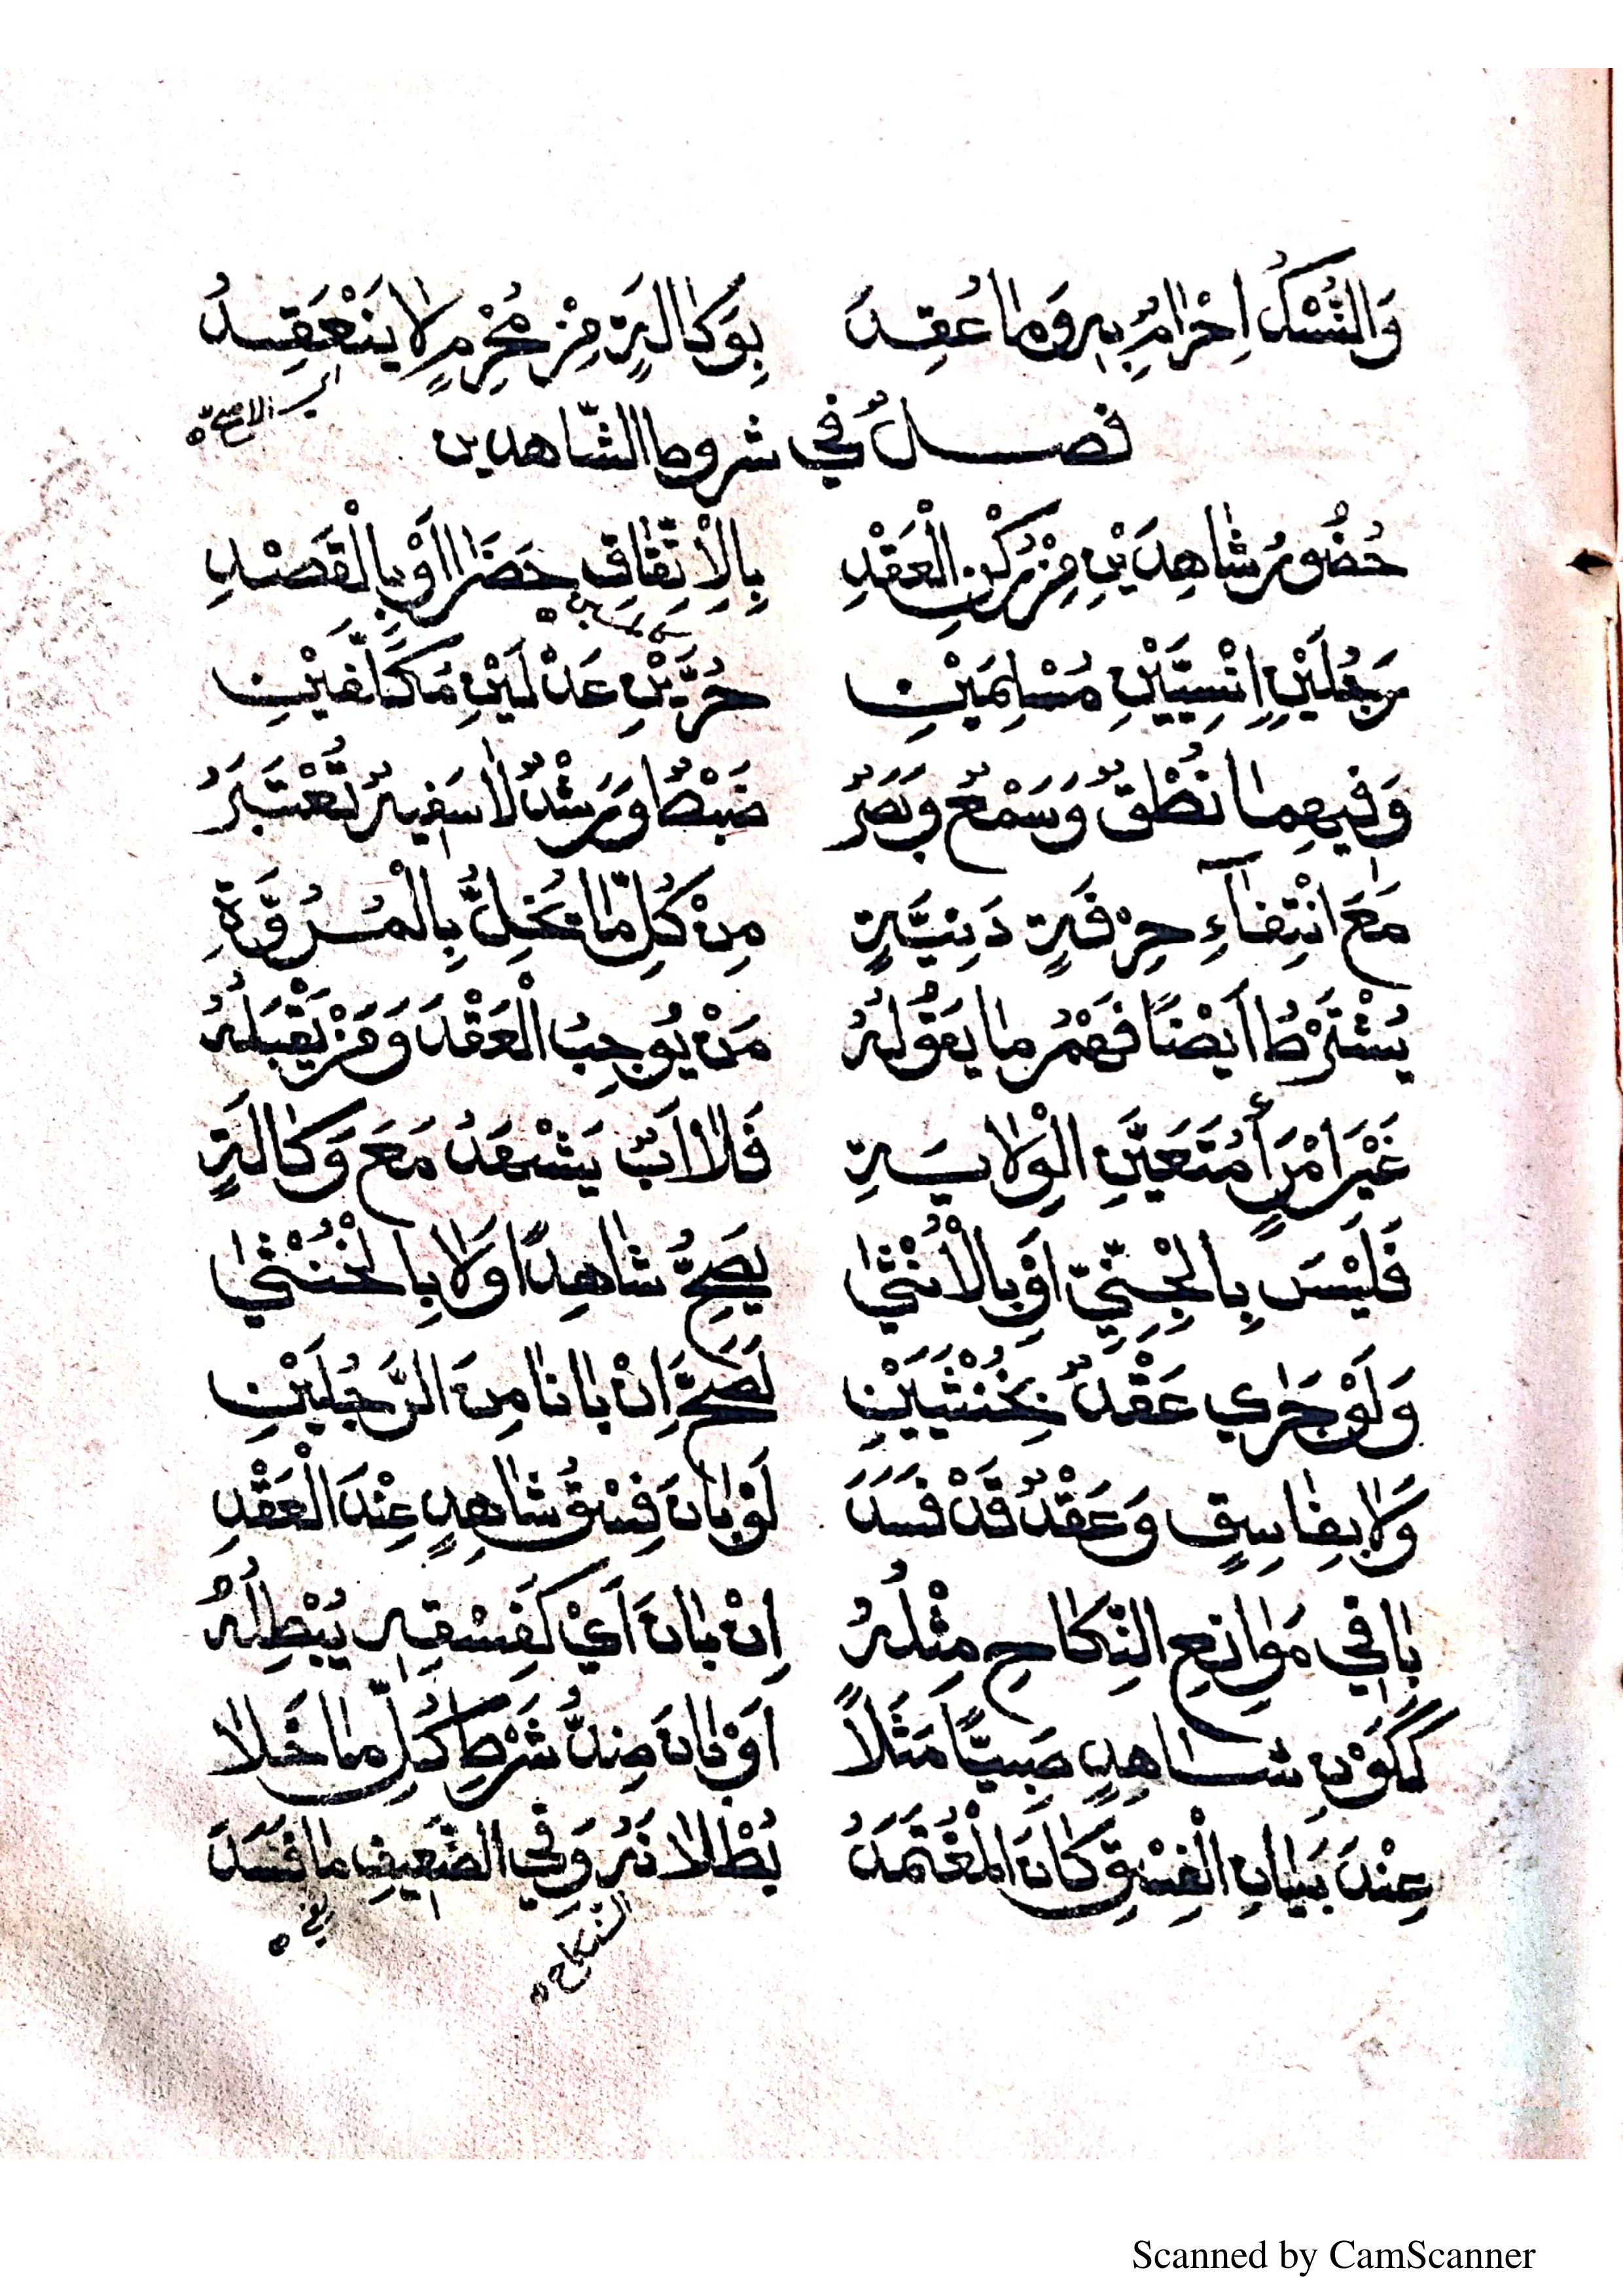 وَالنُّسْكُ اِحْرَامٌ بِهِ وَمَا عُقِدَ بِوَكَالَةٍ مِنْ مُحْرِمٍ لَا يَنْعَقِدُ
الاصح
فصلٌ في شروط الشّاهدين
حُضُورُ شَاهِدَيْنِ مِنْ رُكْنِ الْعَقْدِ بِالْاِتِّفَاقِ حَضَرَا اَوْ بِالْقَصْدِ
رَجُلَيْنِ اِنْسِيَّيْنِ مُسْلِمَيْنِ حُرَّيْنِ عَدْلَيْنِ مُكَلَّفَيْنِ
وَفِيهِمَا نُطْقٌ وَسَمْعٌ وَبَصَرٌ ضَبْطٌ وَرُشْدٌ لَا سَفِيهٌ تُعْتَبَرُ
مَعَ انْتِفَآءِ حِرْفَةٍ دَنِيَّةٍ مِنْ كُلِّ مَا تُخِلُّ بِالْمُرُوَّةِ
يُشْتَرَطُ اَيْضًا فَهْمُ مَا يَقُولُهُ مَنْ يُوجِبُ الْعَقْدَ وَمَنْ يَقْبَلُهُ
غَيْرَ امْرَأٍ مُتَعَيَّنِ الْوِلَايَةِ فَلَا اَبٌ يَشْهَدُ مَعَ وَكَالَةٍ
فَلَيْسَ بِالْجِنِّيِّ اَوْ بِالْاُنْثَى يَصِحُّ شَاهِدًا وَلَا بِالْخُنْثَى
وَلَوْ جَرَى عَقْدٌ بِخُنْثَيَيْنِ لَصَحَّ اِنْ بَانَا مِنَ الرَّجُلَيْنِ
وَلَا بِفَاسِقٍ وَعَقْدٌ قَدْ فَسَدَ لَوْ بَانَ فِسْقُ شَاهِدٍ عِنْدَ الْعَقْدِ
بَاقِي مَوَانِعِ النِّكَاحِ مِثْلُهُ اِنْ بَانَ اَيْ كَفِسْقِهِ يُبْطِلُهُ
كَكَوْنِ شَاهِدٍ صَبِيًّا مَثَلًا اَوْ بَانَ ضِدُّ شَرْطِ كُلِّ مَا خَلَا
عِنْدَ بَيَانِ الْفِسْقِ كَانَ الْمُعْتَمَدُ بُطْلَانَهُ وَفِي الضَّعِيفِ مَا فَسَدَ
النكاح